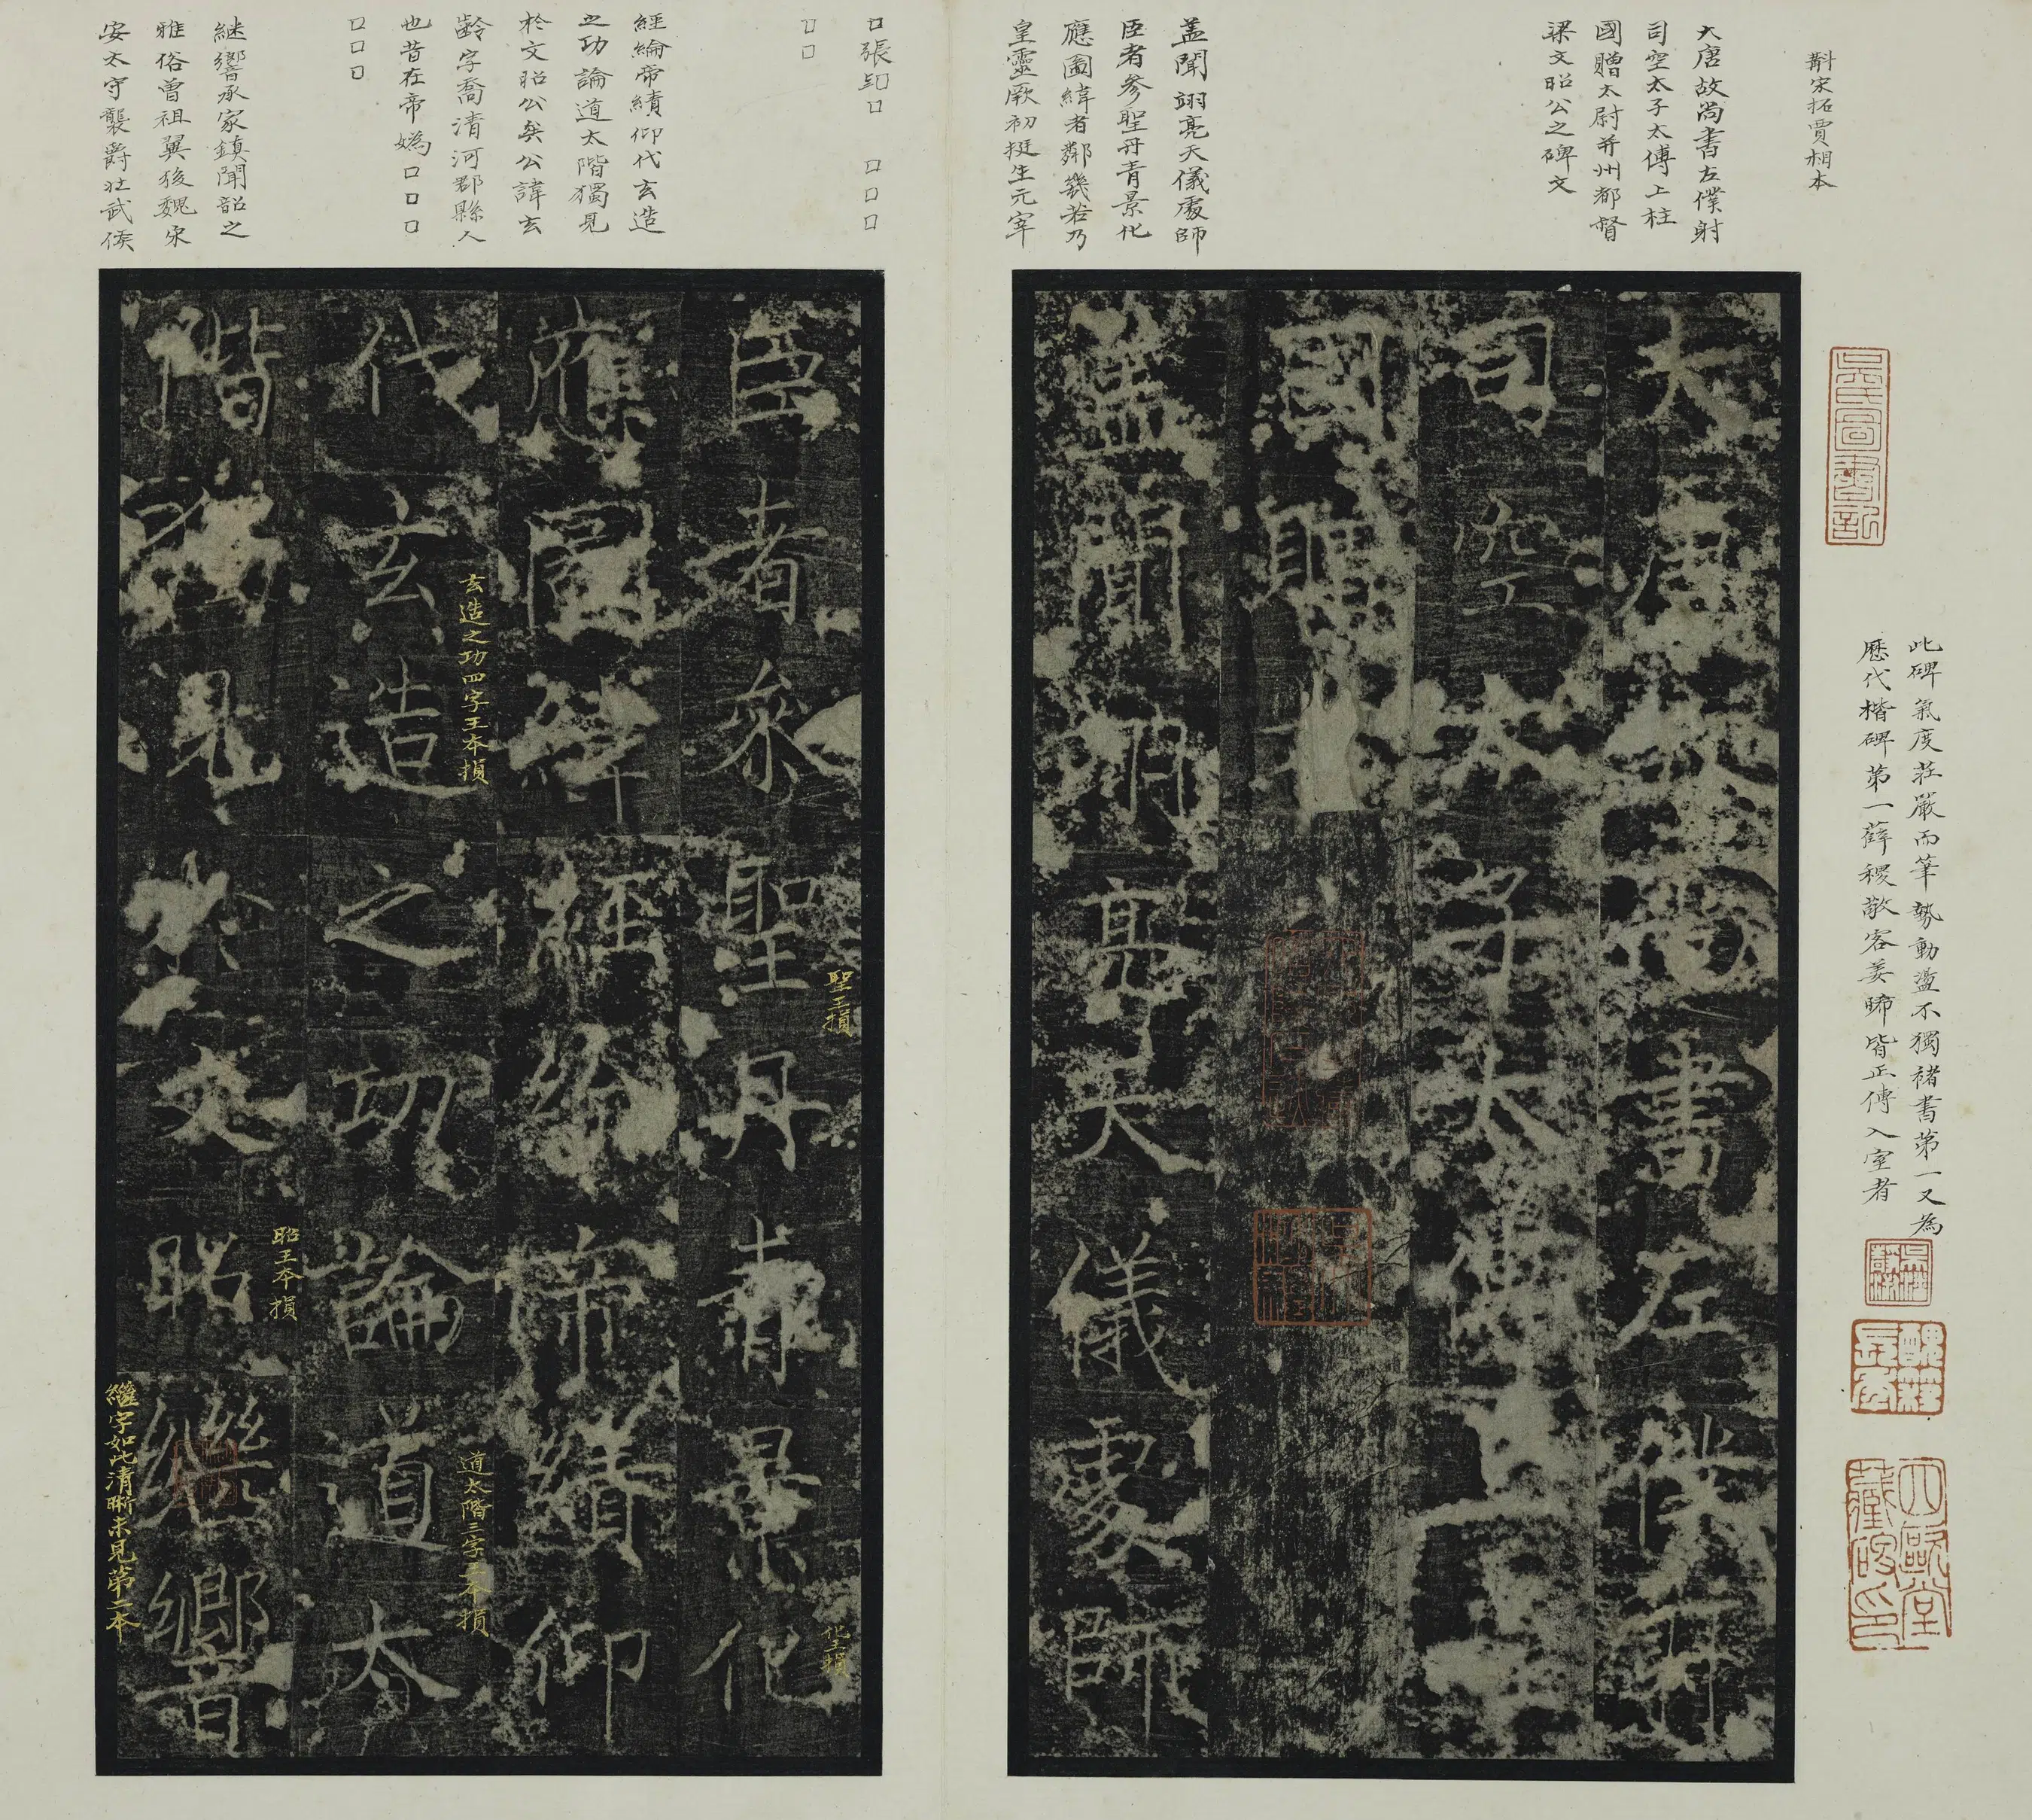 斠宋拓賈相本
大唐故尚書左僕射
司空太子太傅上柱
國贈太尉并州都督
梁文昭公之碑文
蓋聞翊亮天儀處師
臣者參聖丹青景化
應圖緯者鄰幾若乃
皇靈厥初挺生元宰
□張□□□□
□□
經綸帝績仰代玄造
之功論道太階獨見
於文昭公矣公諱玄
齡字喬清河郡縣人
也昔在帝媯□□□
□□□
継響承家鎮聞韶之
雅俗曾祖翼後魏宋
安太守襲爵壯武侯
此碑氣度莊嚴而筆勢動盪不獨褚書第一又為
歷代楷碑第一薛稷敬客姜晞皆正傳入室者
吳氏圖書記
醜簃長壽
四歐堂藏碑印
大唐故尚書左僕射
司空太子太傅上
國贈
蓋聞翊亮天儀處師
臣者參聖丹青景化
聖王損
化王損
應圖緯經綸帝績仰
代玄造之功論道太
玄造之功四字王本損
道太階三字王本損
階獨見於文昭繼響
昭王本損
繼字如此清晰未見第二本